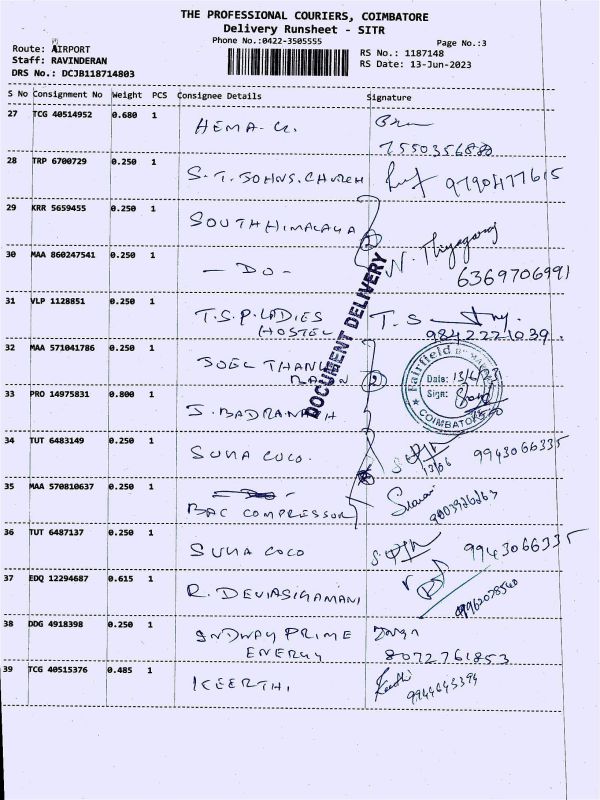 THE PROFESSIONAL COURIERS, COIMBATORE
Delivery Runsheet - SITR
Phone No.:0422-3505555
Page No.:3
Route: AIRPORT
Staff: RAVINDERAN
DRS No.: DCJB118714803
RS No.: 1187148
RS Date: 13-Jun-2023
S No Consignment No Weight PCS Consignee Details Signature
27 TCG 40514952 0.680 1 HEMA. U.
28 TRP 6700729 0.250 1 S.T. JOHNS. CHURCH 9790477615
29 KRR 5659455 0.250 1 SOUTH HIMALAYA
30 MAA 860247541 0.250 1 - DO - N. Thiyagaraj
6369706991
31 VLP 1128851 0.250 1 T.S.P. LADIES T. S
HOSTEL 9842221039.
DOCUMENT DELIVERY
32 MAA 571041786 0.250 1 JOEL 2
Fairfield BY
Date: 13/6/23
Sign:
COIMBATORE
33 PRO 14975831 0.800 1 J. BADRANATH
34 TUT 6483149 0.250 1 SUNA COCO. 13/06 9943066335
35 MAA 570810637 0.250 1 BAC COMPRESSOR
36 TUT 6487137 0.250 1 SUNA COCO 9943066335
37 EDQ 12294687 0.615 1 R. DEVIASIGAMANI
38 DDG 4918398 0.250 1 INDWAY PRIME
ENERGY 8072761853
39 TCG 40515376 0.485 1 KEERTHI Keerthi
9944645394